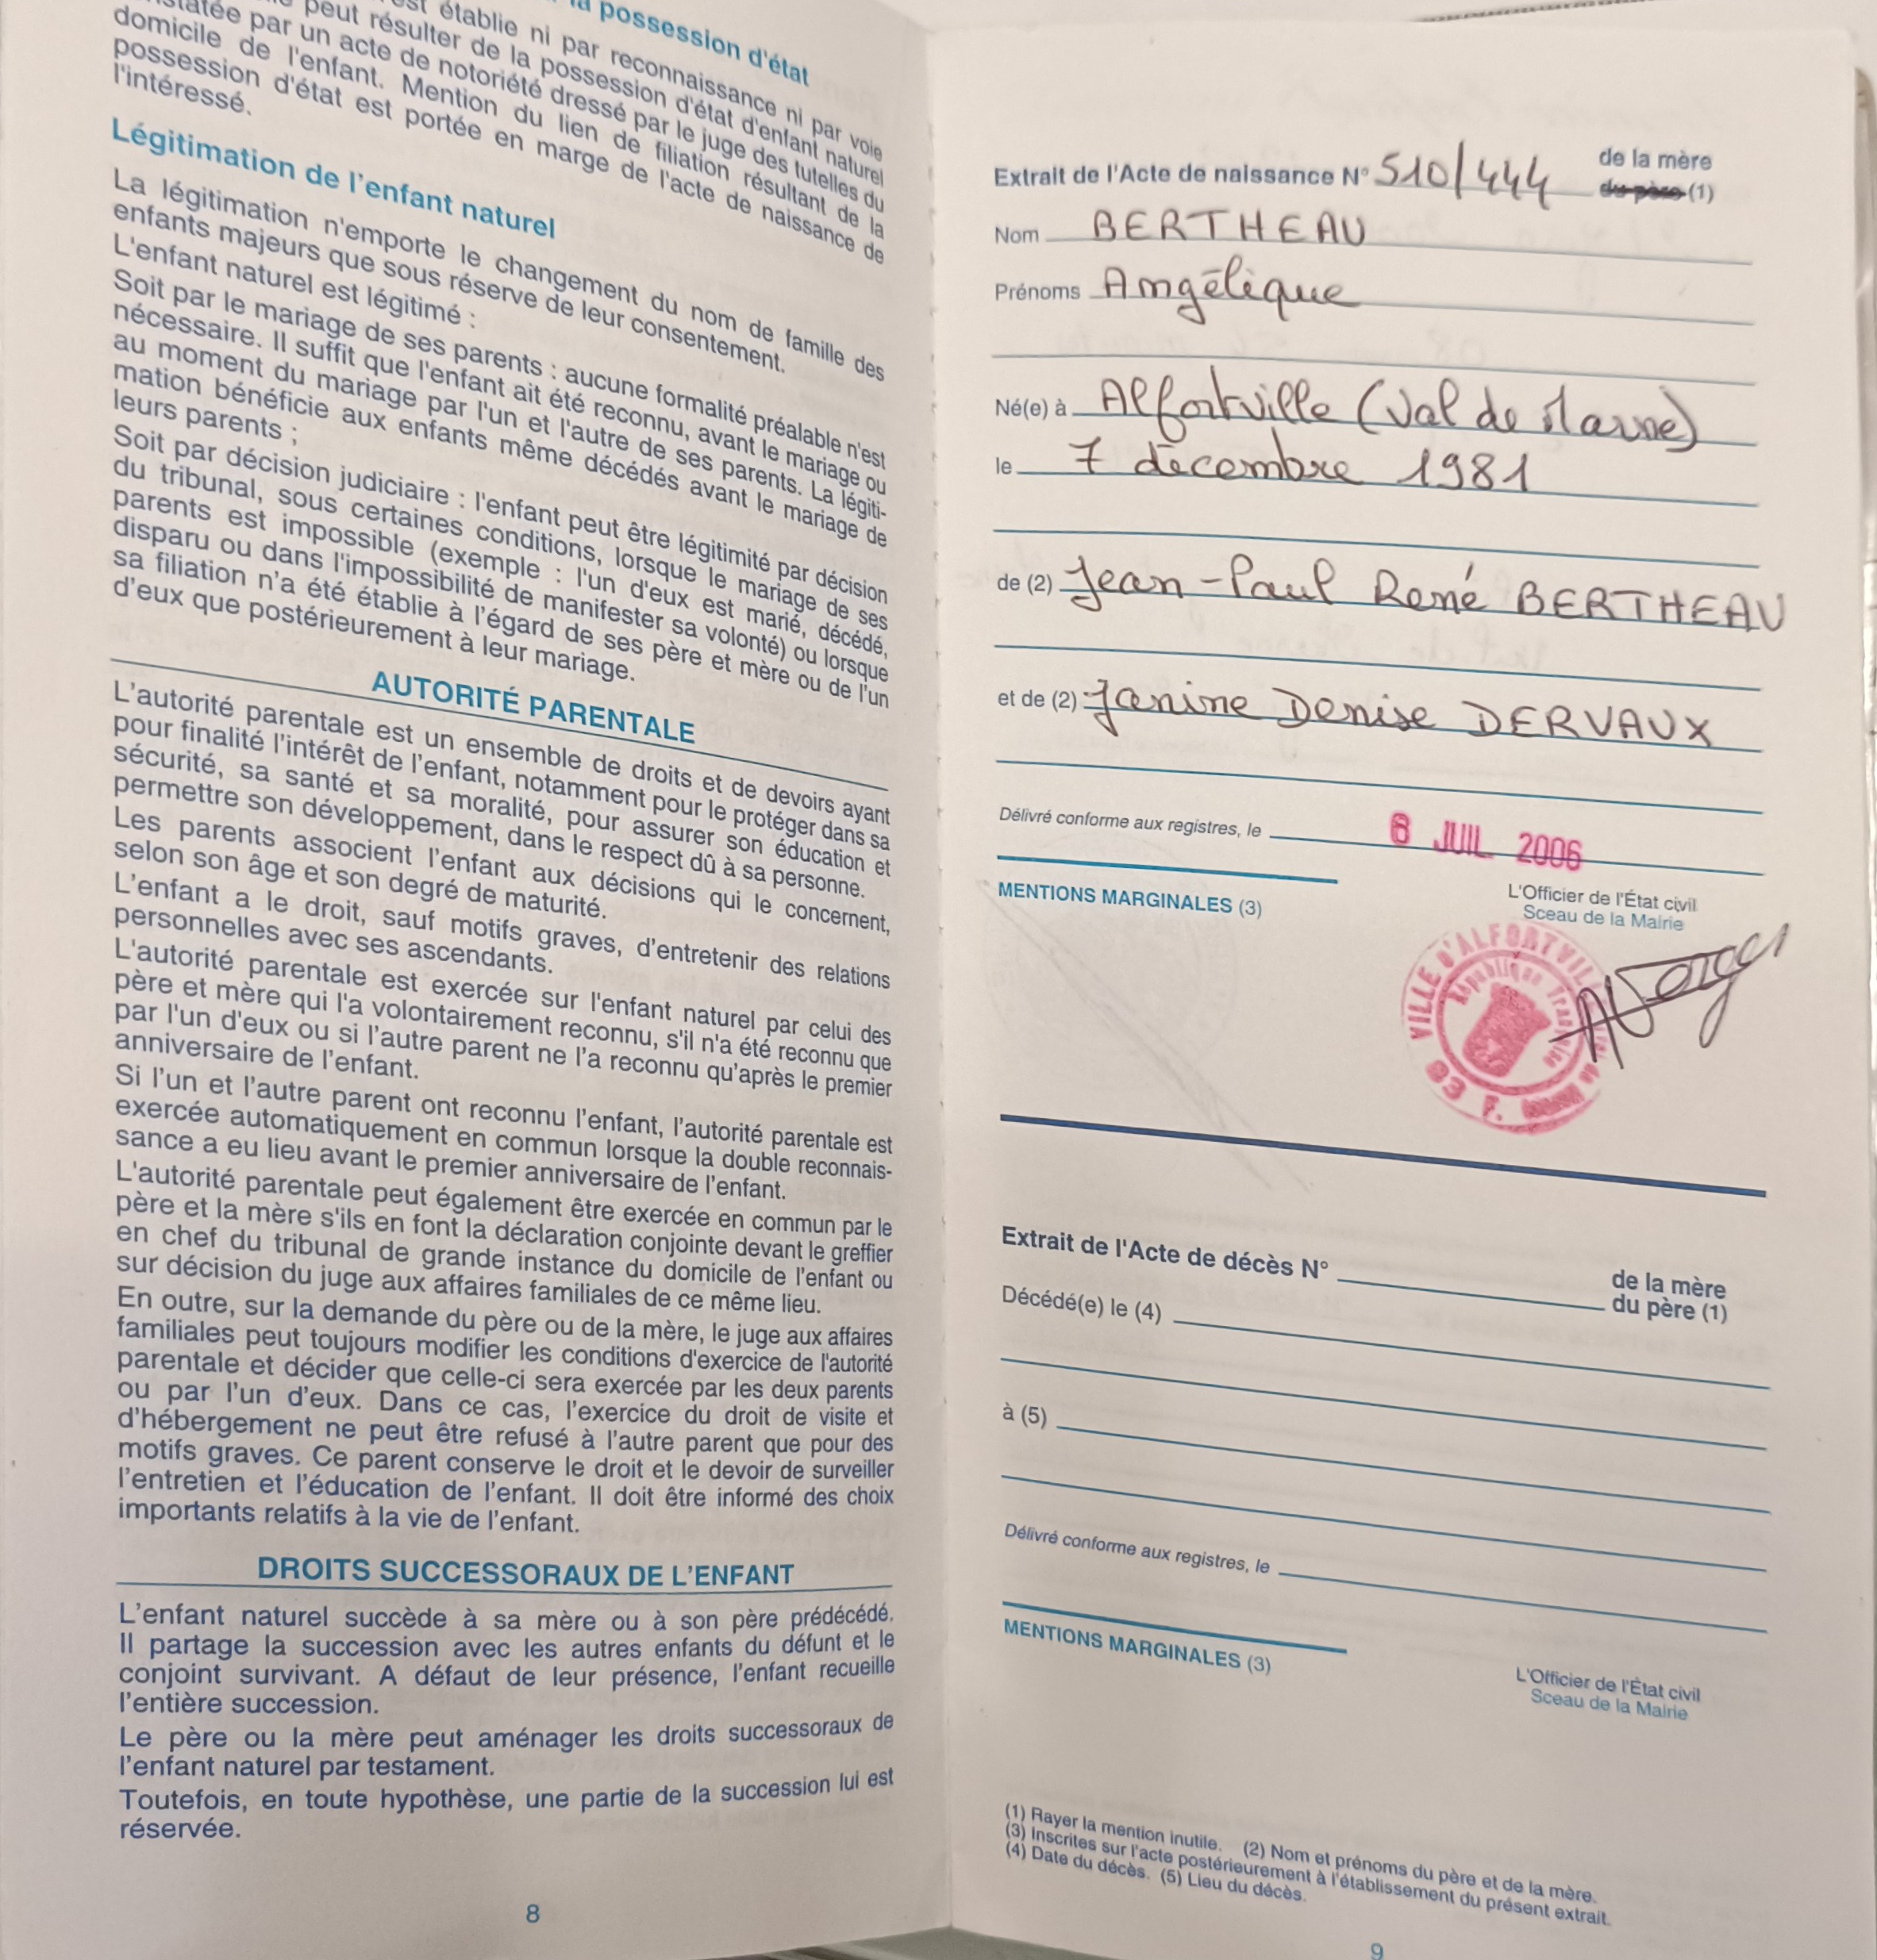 la possession d'état
est établie ni par reconnaissance ni par voie
peut résulter de la possession d'état d'enfant naturel
par un acte de notoriété dressé par le juge des tutelles du
domicile de l'enfant. Mention du lien de filiation résultant de la
possession d'état est portée en marge de l'acte de naissance de
l'intéressé.
Légitimation de l'enfant naturel
La légitimation n'emporte le changement du nom de famille des
enfants majeurs que sous réserve de leur consentement.
L'enfant naturel est légitimé :
Soit par le mariage de ses parents : aucune formalité préalable n'est
nécessaire. Il suffit que l'enfant ait été reconnu, avant le mariage ou
au moment du mariage par l'un et l'autre de ses parents. La légiti-
mation bénéficie aux enfants même décédés avant le mariage de
leurs parents ;
Soit par décision judiciaire : l'enfant peut être légitimité par décision
du tribunal, sous certaines conditions, lorsque le mariage de ses
parents est impossible (exemple : l'un d'eux est marié, décédé,
disparu ou dans l'impossibilité de manifester sa volonté) ou lorsque
sa filiation n'a été établie à l'égard de ses père et mère ou de l'un
d'eux que postérieurement à leur mariage.
AUTORITÉ PARENTALE
L'autorité parentale est un ensemble de droits et de devoirs ayant
pour finalité l'intérêt de l'enfant, notamment pour le protéger dans sa
sécurité, sa santé et sa moralité, pour assurer son éducation et
permettre son développement, dans le respect dû à sa personne.
Les parents associent l'enfant aux décisions qui le concernent,
selon son âge et son degré de maturité.
L'enfant a le droit, sauf motifs graves, d'entretenir des relations
personnelles avec ses ascendants.
L'autorité parentale est exercée sur l'enfant naturel par celui des
père et mère qui l'a volontairement reconnu, s'il n'a été reconnu que
par l'un d'eux ou si l'autre parent ne l'a reconnu qu'après le premier
anniversaire de l'enfant.
Si l'un et l'autre parent ont reconnu l'enfant, l'autorité parentale est
exercée automatiquement en commun lorsque la double reconnais-
sance a eu lieu avant le premier anniversaire de l'enfant.
L'autorité parentale peut également être exercée en commun par le
père et la mère s'ils en font la déclaration conjointe devant le greffier
en chef du tribunal de grande instance du domicile de l'enfant ou
sur décision du juge aux affaires familiales de ce même lieu.
En outre, sur la demande du père ou de la mère, le juge aux affaires
familiales peut toujours modifier les conditions d'exercice de l'autorité
parentale et décider que celle-ci sera exercée par les deux parents
ou par l'un d'eux. Dans ce cas, l'exercice du droit de visite et
d'hébergement ne peut être refusé à l'autre parent que pour des
motifs graves. Ce parent conserve le droit et le devoir de surveiller
l'entretien et l'éducation de l'enfant. Il doit être informé des choix
importants relatifs à la vie de l'enfant.
DROITS SUCCESSORAUX DE L'ENFANT
L'enfant naturel succède à sa mère ou à son père prédécédé.
Il partage la succession avec les autres enfants du défunt et le
conjoint survivant. A défaut de leur présence, l'enfant recueille
l'entière succession.
Le père ou la mère peut aménager les droits successoraux de
l'enfant naturel par testament.
Toutefois, en toute hypothèse, une partie de la succession lui est
réservée.
8
Extrait de l'Acte de naissance N° 510/444 de la mère
du père (1)
Nom BERTHEAU
Prénoms Angélique
Né(e) à Alfortville (Val de Marne)
le 7 décembre 1981
de (2) Jean-Paul René BERTHEAU
et de (2) Janine Denise DERVAUX
Délivré conforme aux registres, le 6 JUIL. 2006
MENTIONS MARGINALES (3)
L'Officier de l'État civil
Sceau de la Mairie
VILLE D'ALFORTVILLE
République Française
Extrait de l'Acte de décès N° de la mère
du père (1)
Décédé(e) le (4)
à (5)
Délivré conforme aux registres, le
MENTIONS MARGINALES (3)
L'Officier de l'État civil
Sceau de la Mairie
(1) Rayer la mention inutile. (2) Nom et prénoms du père et de la mère.
(3) Inscrites sur l'acte postérieurement à l'établissement du présent extrait.
(4) Date du décès. (5) Lieu du décès.
9